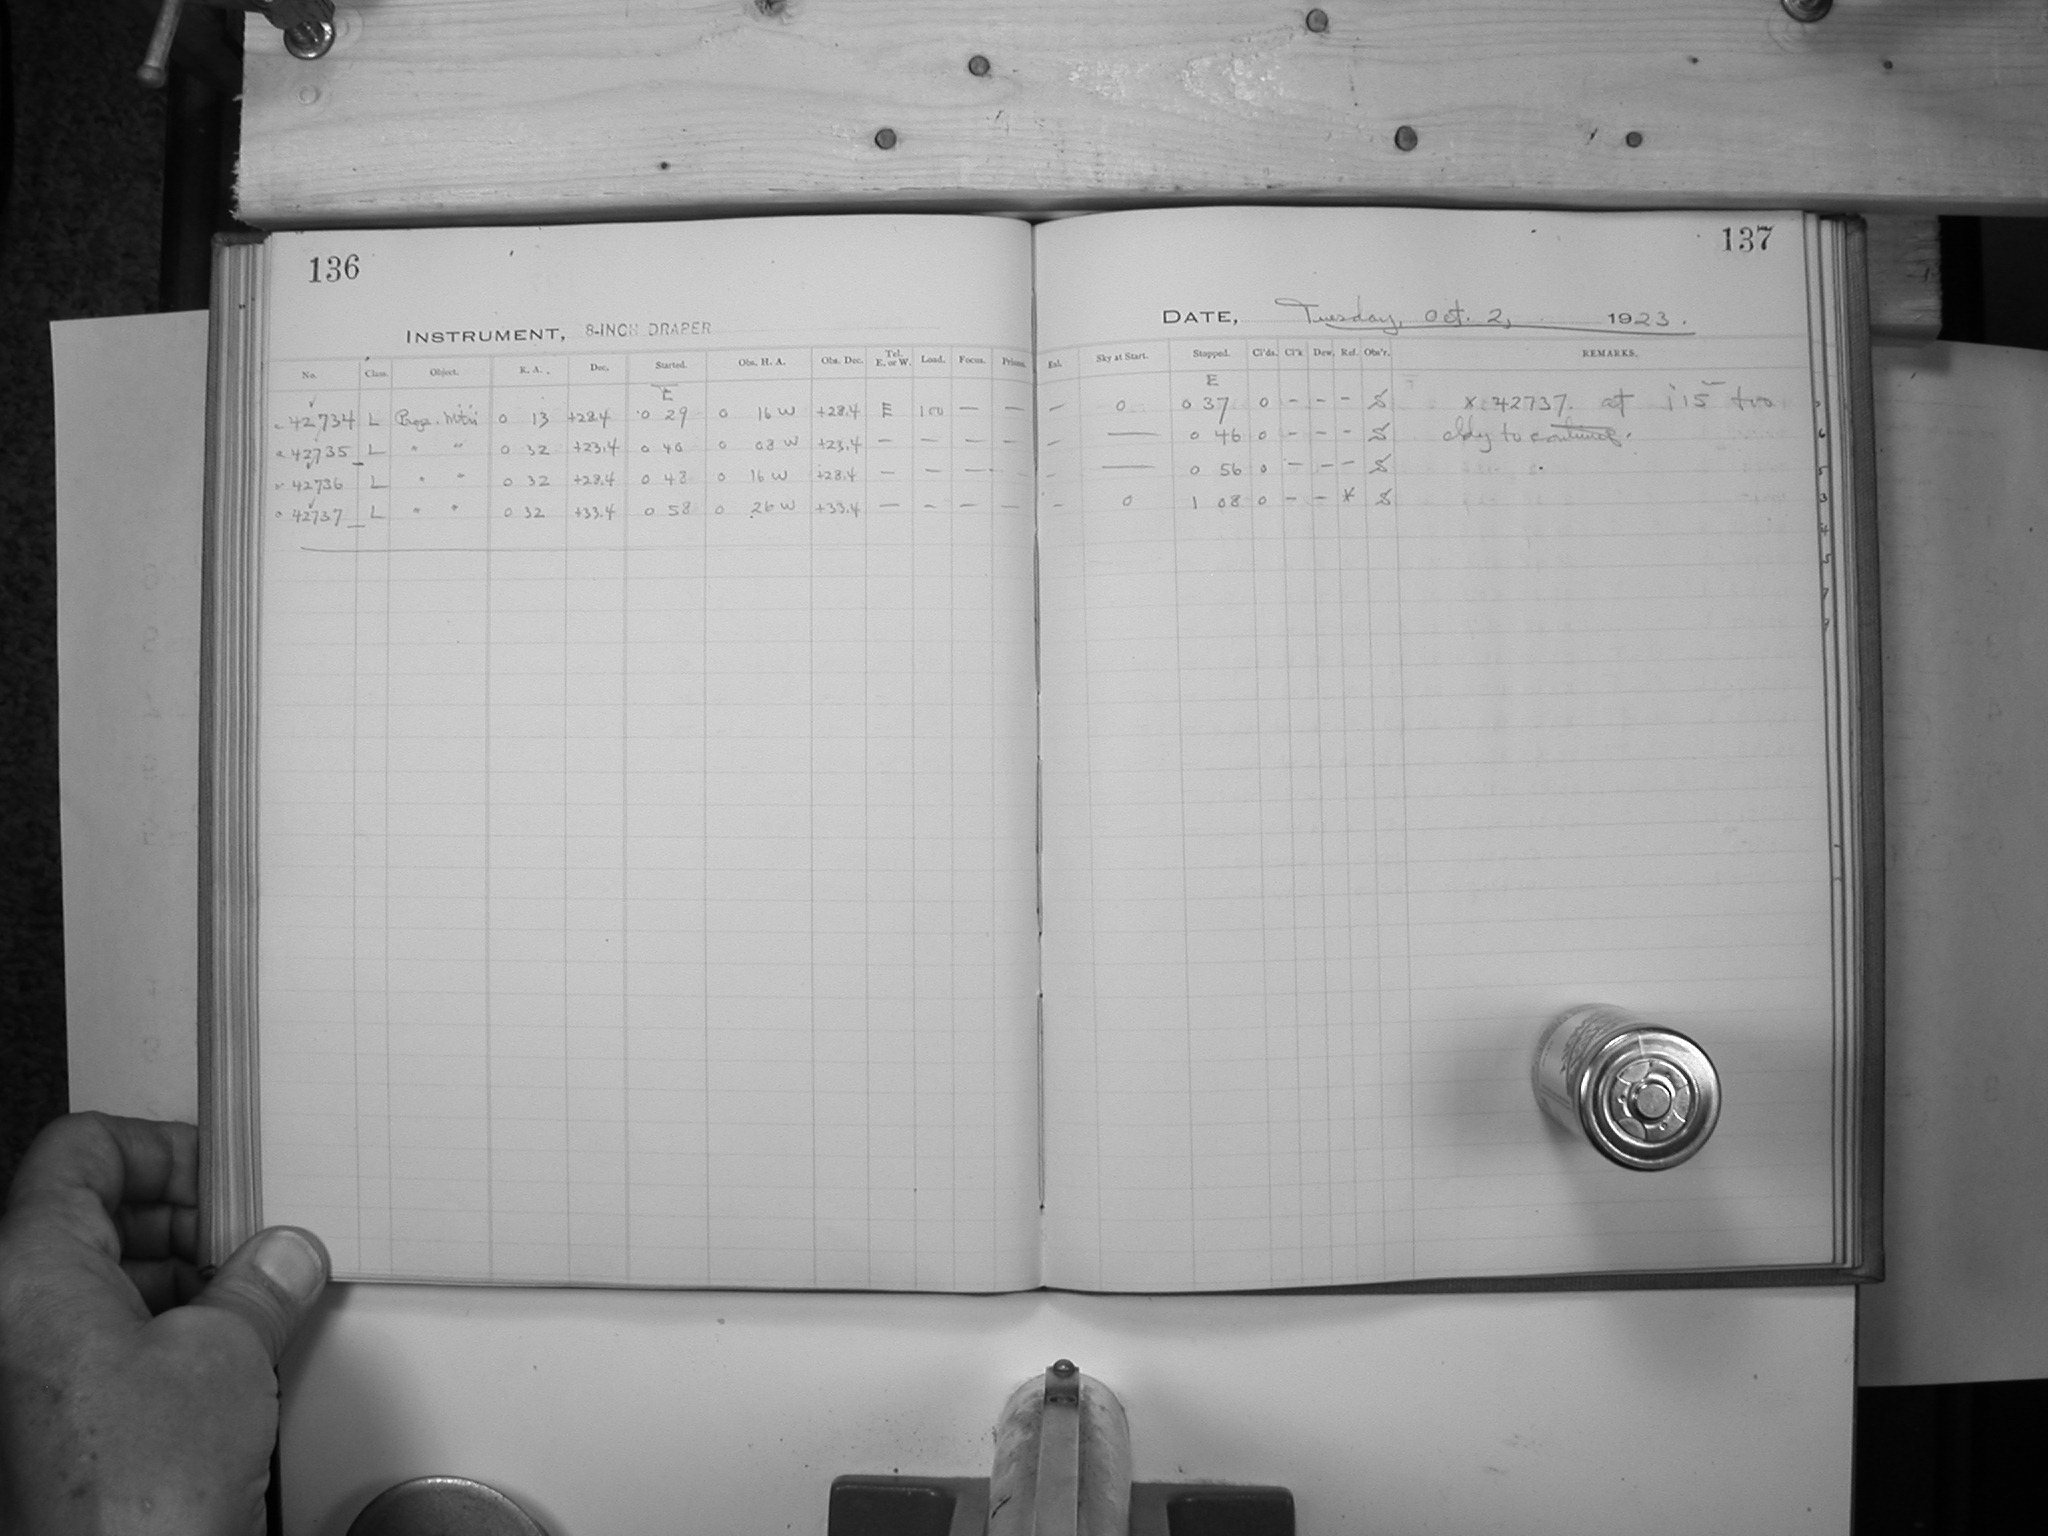 136
INSTRUMENT, 8-INCH DRAPER
No. Class. Object. R. A. Dec. Started. Obs. H. A. Obs. Dec. Tel. E. or W. Load. Focus. Prisms.
E
42734 L 0 13 +28.4 0 29 0 16 W +28.4 E 100 — —
42735 L " " 0 32 +23.4 0 40 0 08 W +23.4 — — — —
42736 L " " 0 32 +28.4 0 48 0 16 W +28.4 — — — —
42737 L " " 0 32 +33.4 0 58 0 26 W +33.4 — — — —
137
DATE, Tuesday, Oct. 2, 1923.
Sky at Start. Stopped. Cl'ds. Cl'k Dew. Ref. Obs'r. REMARKS.
E
— 0 0 37 0 — — — S x 42737. at 1 15 too
— — 0 46 0 — — — S cldy to continue.
— — 0 56 0 — — — S
— 0 1 08 0 — — * S